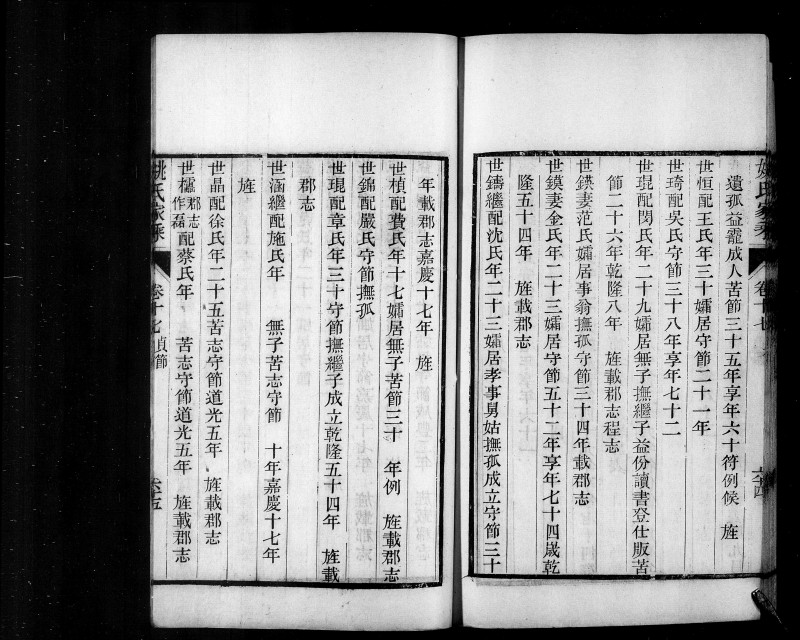 姚氏家乘 卷十七 六十四
遺孤益寵成人苦節三十五年享年六十符例候 旌
世恒配王氏年三十孀居守節二十一年
世琦配吳氏守節三十八年享年七十二
世琨配閔氏年二十九孀居無子撫繼子益份讀書登仕版苦
節二十六年乾隆八年 旌載郡志程志
世鍈妻范氏孀居事翁撫孤守節三十四年載郡志
世鏌妻金氏年二十三孀居守節五十二年享年七十四歲乾
隆五十四年 旌載郡志
世鑄繼配沈氏年二十三孀居孝事舅姑撫孤成立守節三十
年載郡志嘉慶十七年 旌
世楨配費氏年十七孀居無子苦節三十 年例 旌載郡志
世錦配嚴氏守節撫孤
世琨配章氏年三十守節撫繼子成立乾隆五十四年 旌載
郡志
世涵繼配施氏年 無子苦志守節 十年嘉慶十七年
旌
世晶配徐氏年二十五苦志守節道光五年 旌載郡志
世櫑郡志作磊配蔡氏年 苦志守節道光五年 旌載郡志
姚氏家乘 卷十七 貞節 六十五